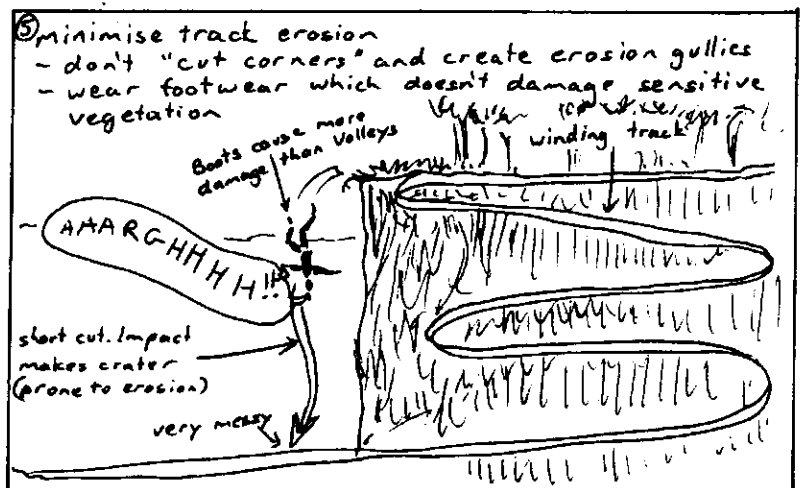 ⑤ minimise track erosion
~ don't "cut corners" and create erosion gullies
~ wear footwear which doesn't damage sensitive
vegetation
Boots cause more
damage than Volleys
winding track
~ AHARGHHHH!!
short cut. Impact
makes crater
(prone to erosion)
very messy